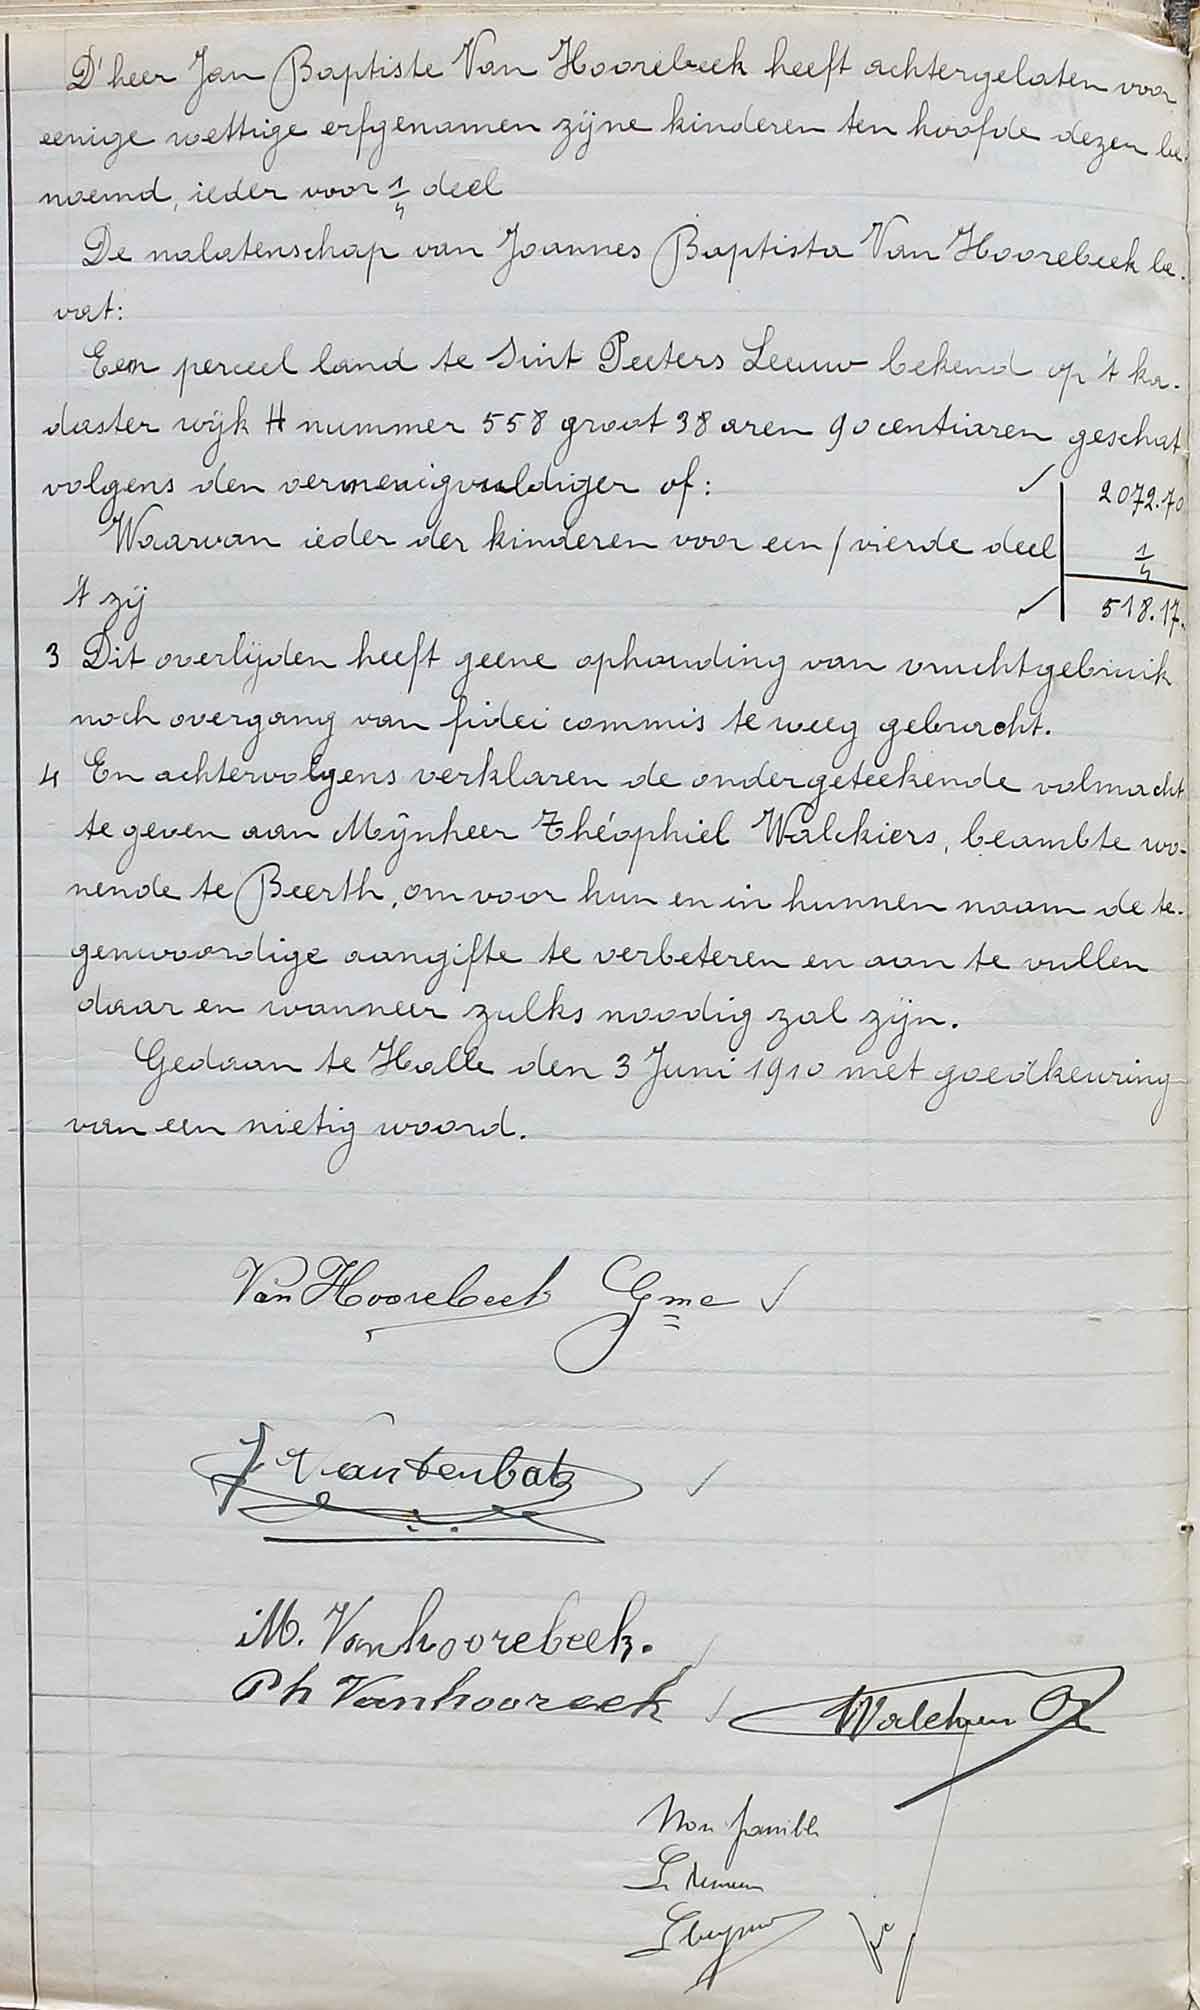 D'heer Jan Baptiste Van Hoorebeek heeft achtergelaten voor
eenige wettige erfgenamen zijne kinderen ten hoofde dezen be-
noemd, ieder voor 1/4 deel
De nalatenschap van Joannes Baptista Van Hoorebeek be-
vat:
Een perceel land te Sint Peeters Leeuw bekend op 't ka-
daster wijk H nummer 558 groot 38 aren 90 centiaren geschat
volgens den vermenigvuldiger of: 2072.70
Waarvan ieder der kinderen voor een / vierde deel 1/4
't zij 518.17.
3 Dit overlijden heeft geene ophouding van vruchtgebruik
noch overgang van fidei commis te weeg gebracht.
4 En achtervolgens verklaren de ondergeteekende volmacht
te geven aan Mijnheer Théophiel Walckiers, beambte wo-
nende te Beerth, om voor hun en in hunnen naam de te-
genwoordige aangifte te verbeteren en aan te vullen
daar en wanneer zulks noodig zal zijn.
Gedaan te Halle den 3 Juni 1910 met goedkeuring
van een nietig woord.
Van Hoorebeek Gme
J Vantenbak
M. Vanhoorebeek.
Ph Vanhooreek
Non